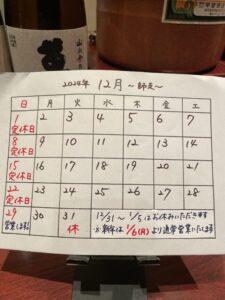 2024年 12月 ～師走～
日 月 火 水 木 金 土
1 2 3 4 5 6 7
定休日
8 9 10 11 12 13 14
定休日
15 16 17 18 19 20 21
定休日
22 23 24 25 26 27 28
定休日
29 30 31 12/31 ～ 1/5はお休みいただきます
営業します 休 ※新年は 1/6(月) より通常営業いたします